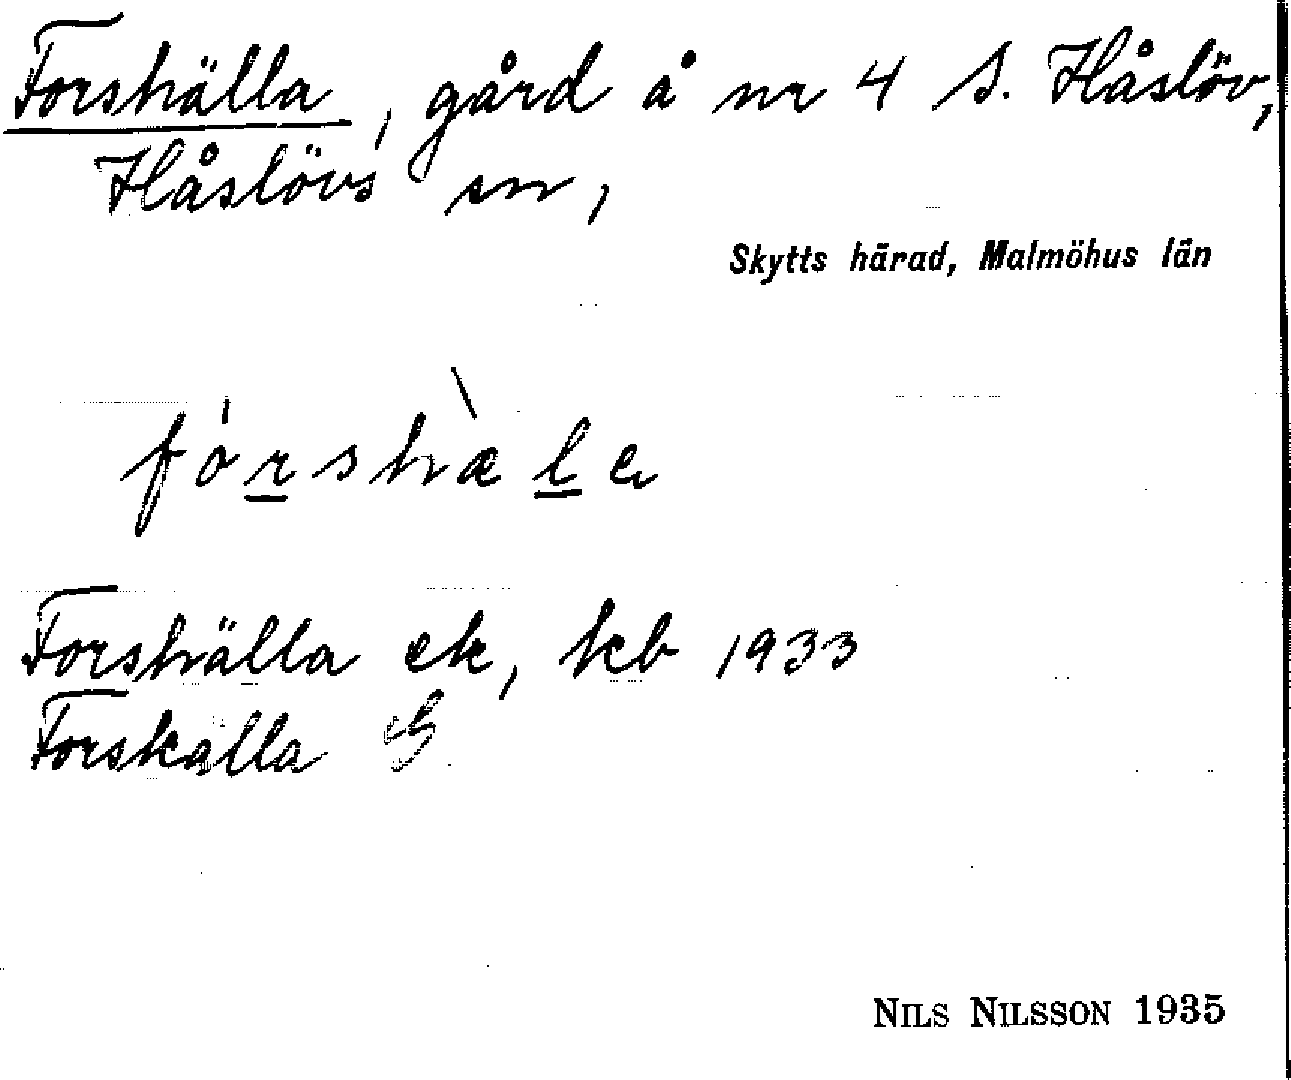 Forshälla, gård å nr 4 S. Håslöv,
Håslövs sn,
Skytts härad, Malmöhus län
fórshæ̀la
Forshälla ek, kcb 1933
Forskälla G
NILS NILSSON 1935